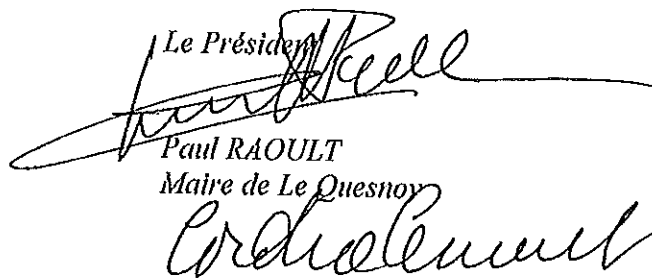 Le Président
Paul RAOULT
Maire de Le Quesnoy
Cordialement